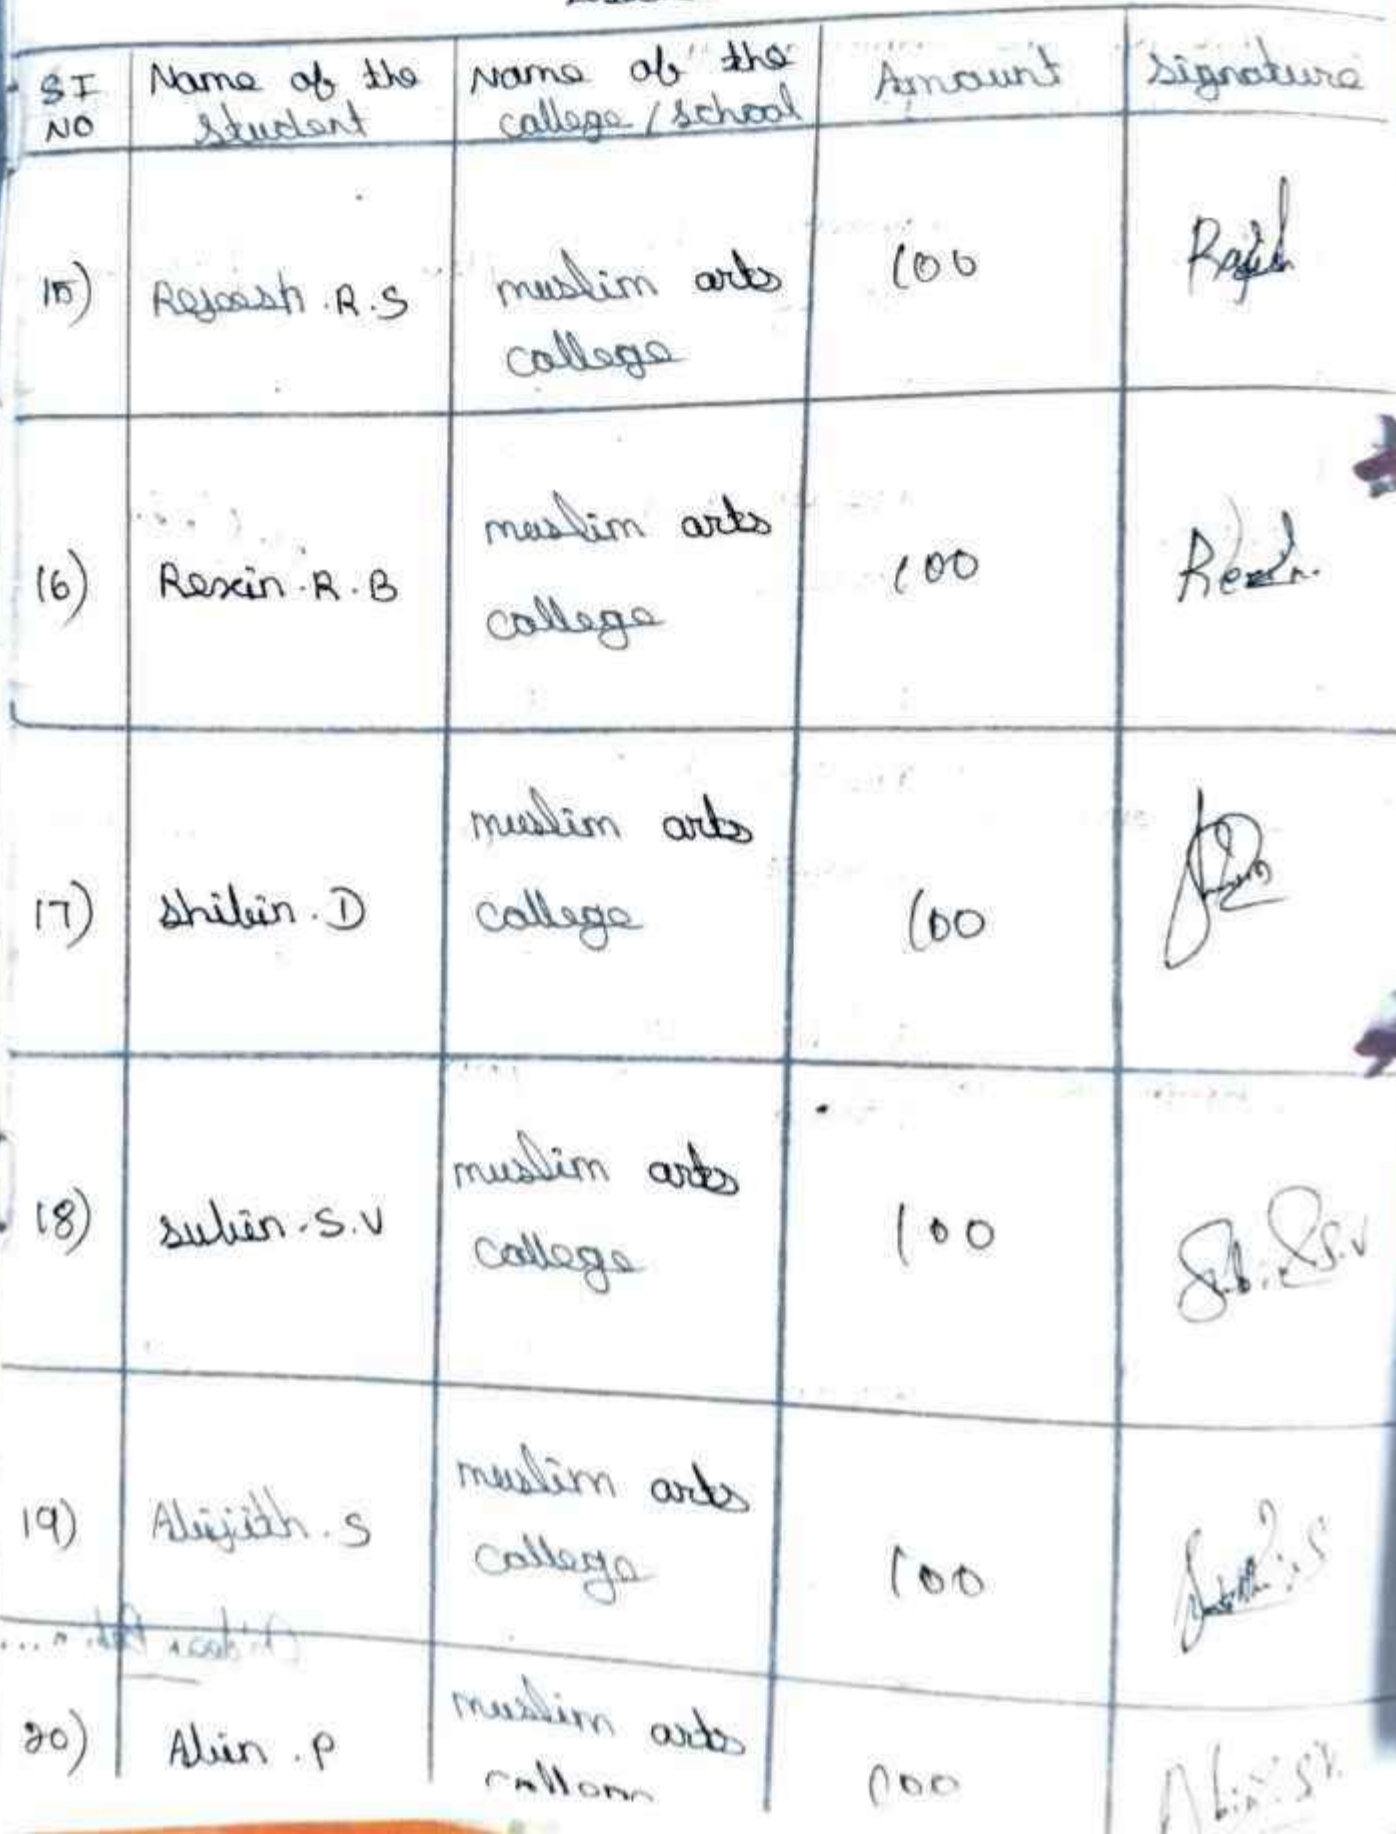 SI NO Name of the student Name of the college / school Amount Signature
15) Rejeesh . R . S muslim arts college 100
16) Rexin . R . B muslim arts college 100
17) Shibin . D muslim arts college 100
18) Subin . S . V muslim arts college 100 Subin S.V
19) Abijith . S muslim arts college 100
20) Abin . P muslim arts 100